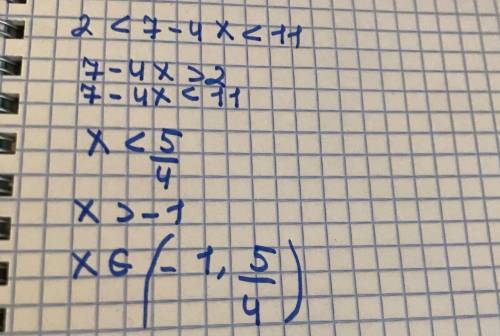 2 < 7 - 4x < 11
7 - 4x > 2
7 - 4x < 11
x < 5/4
x > -1
x ∈ (-1, 5/4)